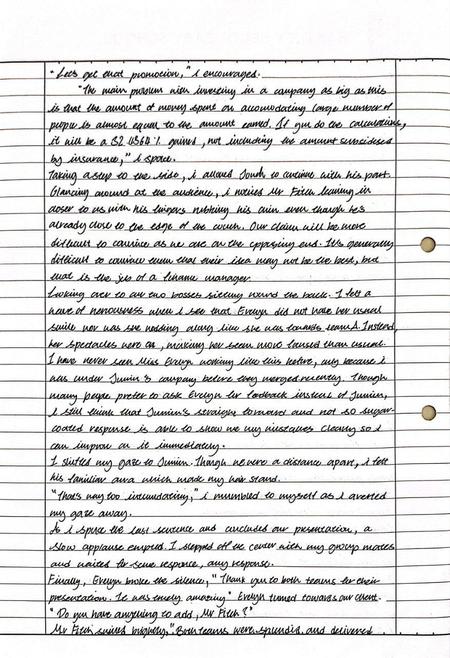 "Let's get that promotion," I encouraged.
"The main problem with investing in a company as big as this
is that the amount of money spent on accomodating large number of
people is almost equal to the amount earned. If you do the calculations,
it will be a 52.0564% gained, not including the amount subsidised
by insurance," I spoke.
Taking a step to the side, I allowed to continue with his part.
Glancing around at the audience, I noticed Mr Fitch leaning in
closer to us with his fingers rubbing his chin even though he's
already close to the edge of the couch. Our claim will be more
difficult to convince as we are on the opposing end. It's generally
difficult to convince them that their idea may not be the best, but
that is the job of a finance manager.
Looking over to our two bosses sitting round the back. I felt a
wave of nervousness when I see that Evelyn did not have her usual
smile nor was she nodding along like she was towards team A. Instead,
her spectacles were on, making her seem more tensed than usual.
I have never seen Miss Evelyn working like this before, only because I
was under Junmin's company before they merged recently. Though
many people prefer to ask Evelyn for feedback instead of Junmin,
I still think that Junmin's straight forward and not so sugar-
coated response is able to show me my mistakes clearly so I
can improve on it immediately.
I shifted my gaze to Junmin. Though we were a distance apart, I felt
his familiar aura which made my hair stand.
"That's way too intimidating," I mumbled to myself as I averted
my gaze away.
As I spoke the last sentence and concluded our presentation, a
slow applause erupted. I stepped off the center with my group mates
and waited for some response, any response.
Finally, Evelyn broke the silence, "Thank you to both teams for their
presentation. It was truely amazing." Evelyn turned towards our client.
"Do you have anything to add, Mr Fitch?"
Mr Fitch smiled "Both teams were splendid and delivered